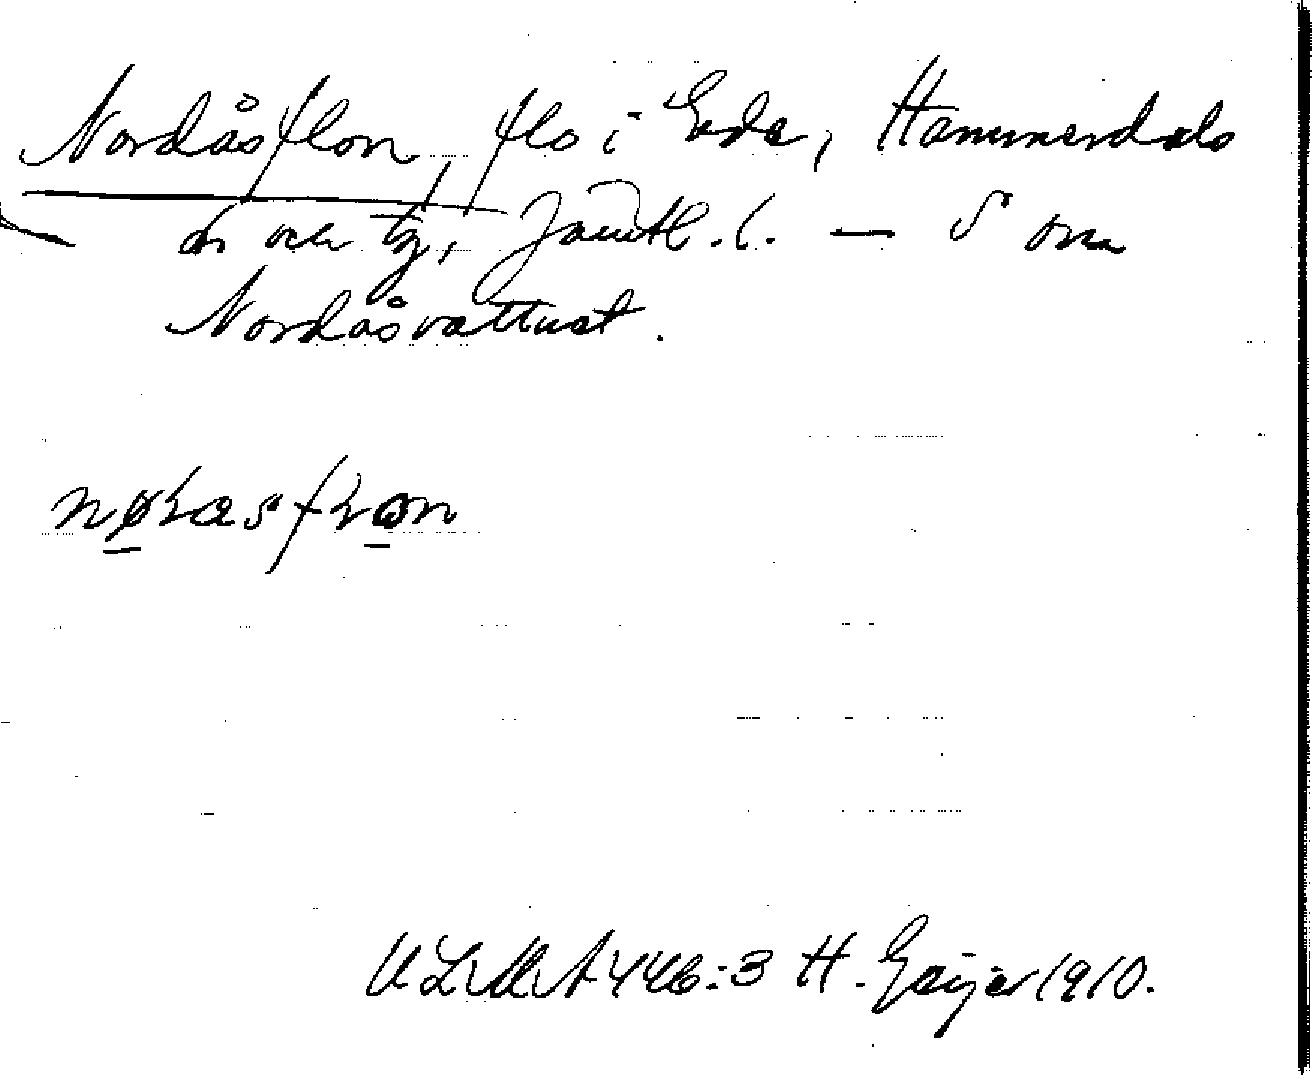 Nordåsflon, flo i Ede, Hammerdals
sn och tg, Jämtl. l. — S om
Nordåsvattnet.
ULMA 446:3 H. Geijer 1910.